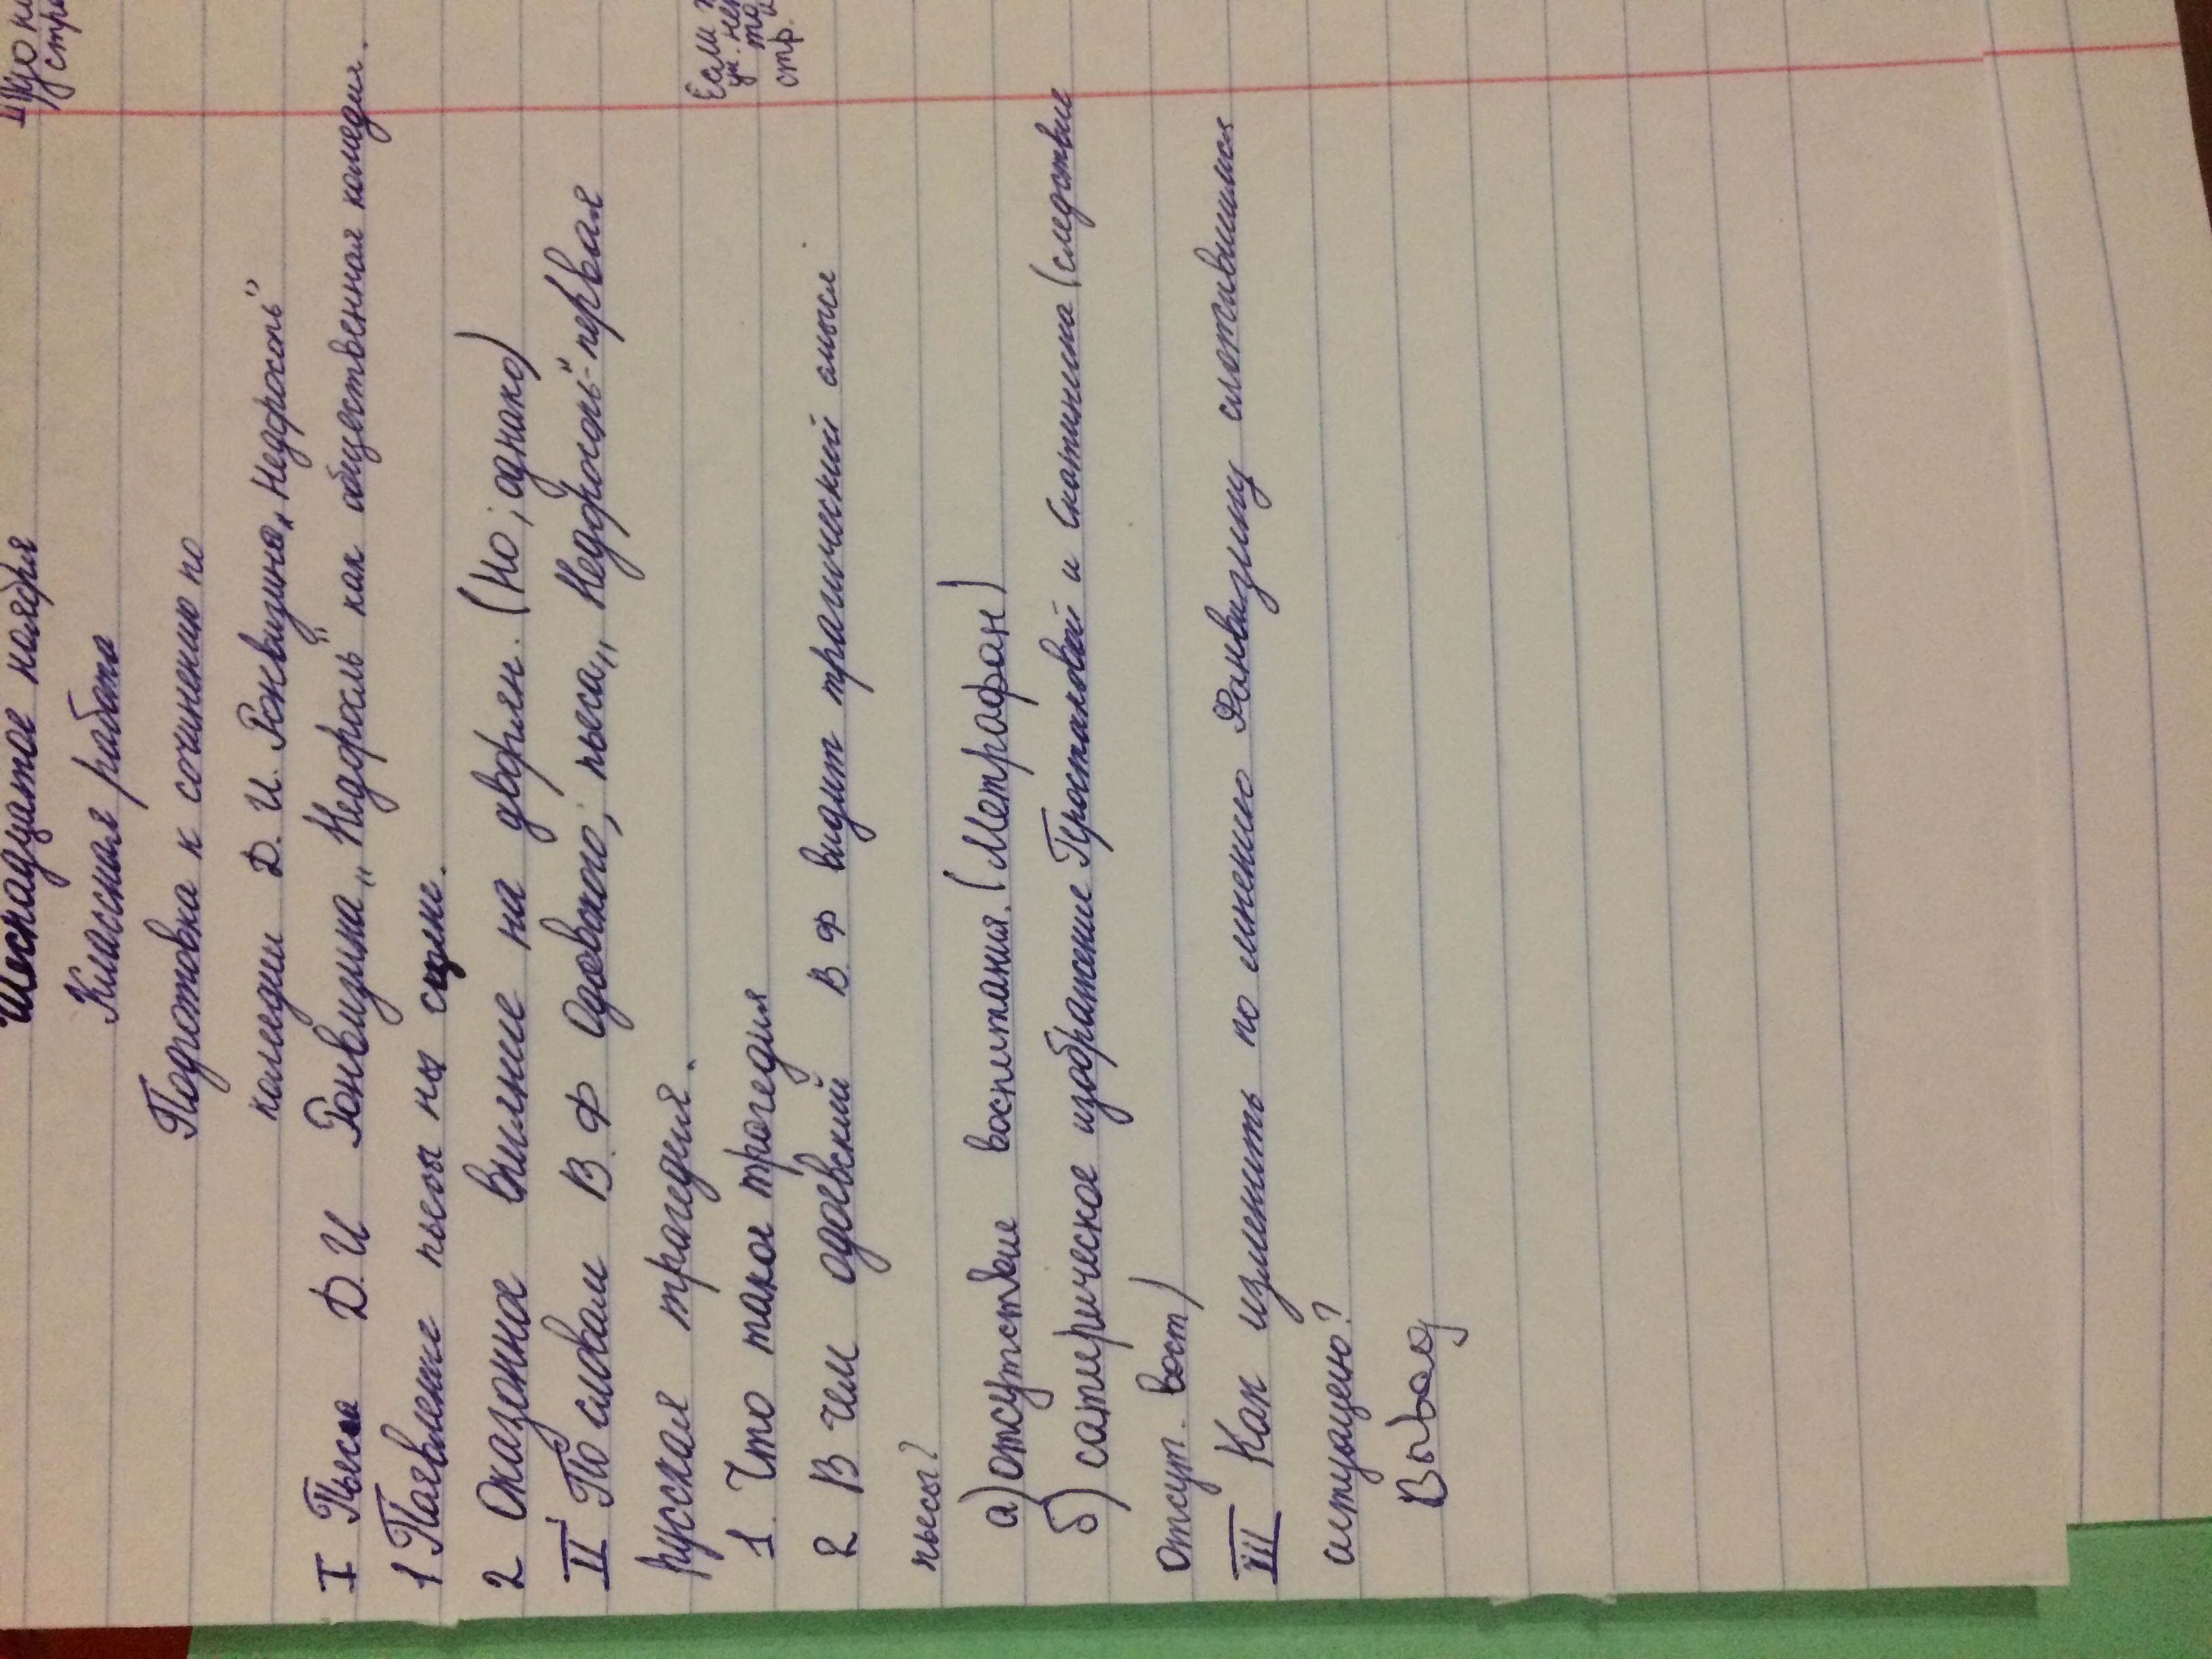 Шеснадцатое ноября
Классная работа
Подготовка к сочинению по
комедии Д. И. Фонвизина „Недоросль"
I Пьеса Д. И Фонвизина „Недоросль" как общественная комедия.
1 Появление пьесы на сцене.
2 Оказанное влияние на дворян. (Но ; однако)
II По словам В. Ф Одоевского, пьеса „Недоросль" - первая
русская трагедия.
1. Что такое трагедия
2 В чем одоевский В. Ф видит трагический смысл
пьесы?
а) отсутствие воспитания. (Метрафан)
б) сатирическое изображение Простаковой и Скотинина (следствие
отсут. восп)
III Как изменить по мнению Фонвизину сложившимся
ситуацию?
Вывод
стр
Если
ум.
стр.